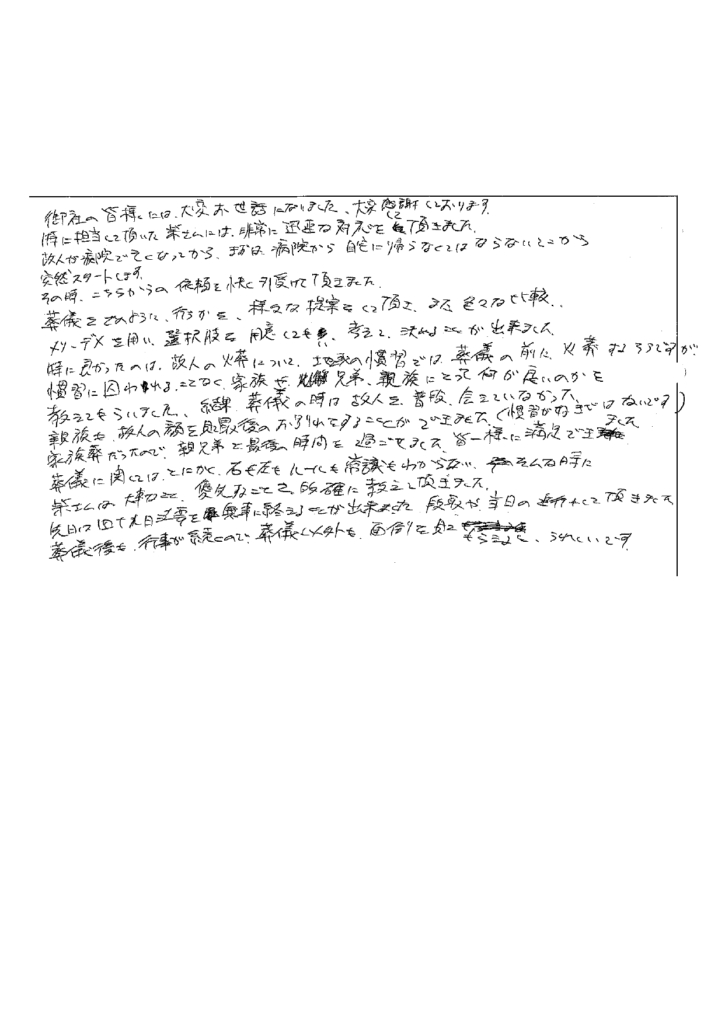 御社の皆様には、大変お世話になりました、大変感謝しております。
特に担当して頂いた柴さんには、非常に迅速な対応をして頂きました。
故人が病院で亡くなってから、まずは病院から自宅に帰らなくてはならないところから
突然スタートします。
その時、こちらからの依頼を快く引受けて頂きました。
葬儀をどのように、行うかを、様々な提案をして頂き、また色々な比較、
メリ・デメを用い、選択肢を用意しても、考えて、決めることが出来ました
特に良かったのは、故人の火葬について、地域の慣習では、葬儀の前に火葬するそうですが、
慣習に囚われることなく、家族や兄弟、親族にとって何が良いのかを
教えてもらいました、結果葬儀の時は故人を、普段、会えていなかった、
親族も、故人の顔を見最後のお別れをすることができました(慣習がだめではないです)
家族葬だったので、親兄弟と最後の時間を過ごせました 皆一様に満足できました
葬儀に関しては、とにかく、右も左もルールも常識もわからない、そんな時に
柴さんは、大切なこと、優先すべきことを的確に教えて頂きました。
無事に終えることが出来ました 段取や、当日の進行をして頂きました
葬儀後も、行事が続くので、葬儀以外も、面倒を見てもらえると、うれしいです